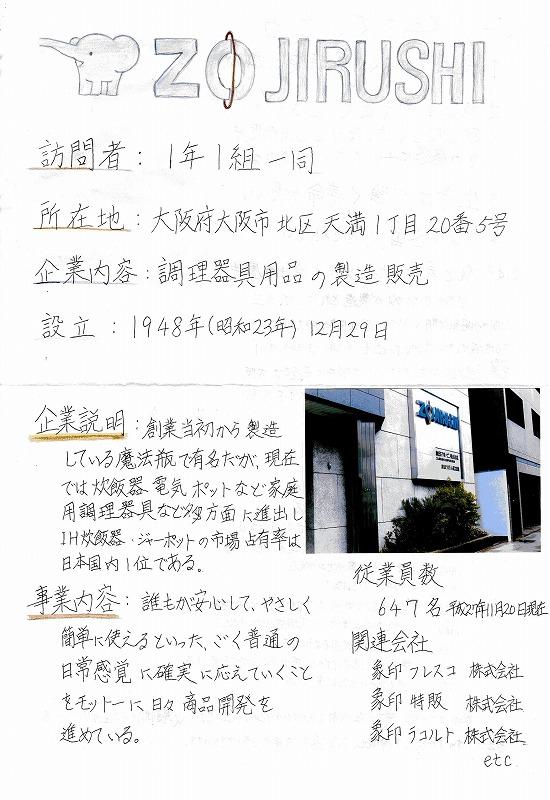 ZOJIRUSHI
訪問者：1年1組一同
所在地：大阪府大阪市北区天満1丁目20番5号
企業内容：調理器具用品の製造販売
設立：1948年(昭和23年) 12月29日
企業説明：創業当初から製造
している魔法瓶で有名だが、現在
では炊飯器 電気ポットなど家庭
用調理器具など多方面に進出し
IH炊飯器・ジャーポットの市場占有率は
日本国内1位である。
ZOJIRUSHI
従業員数
647名 平成27年11月20日現在
関連会社
象印フレスコ 株式会社
象印特販 株式会社
象印ラコルト 株式会社
etc
事業内容：誰もが安心して、やさしく
簡単に使えるといった、ごく普通の
日常感覚に確実に応えていくこと
をモットーに日々商品開発を
進めている。